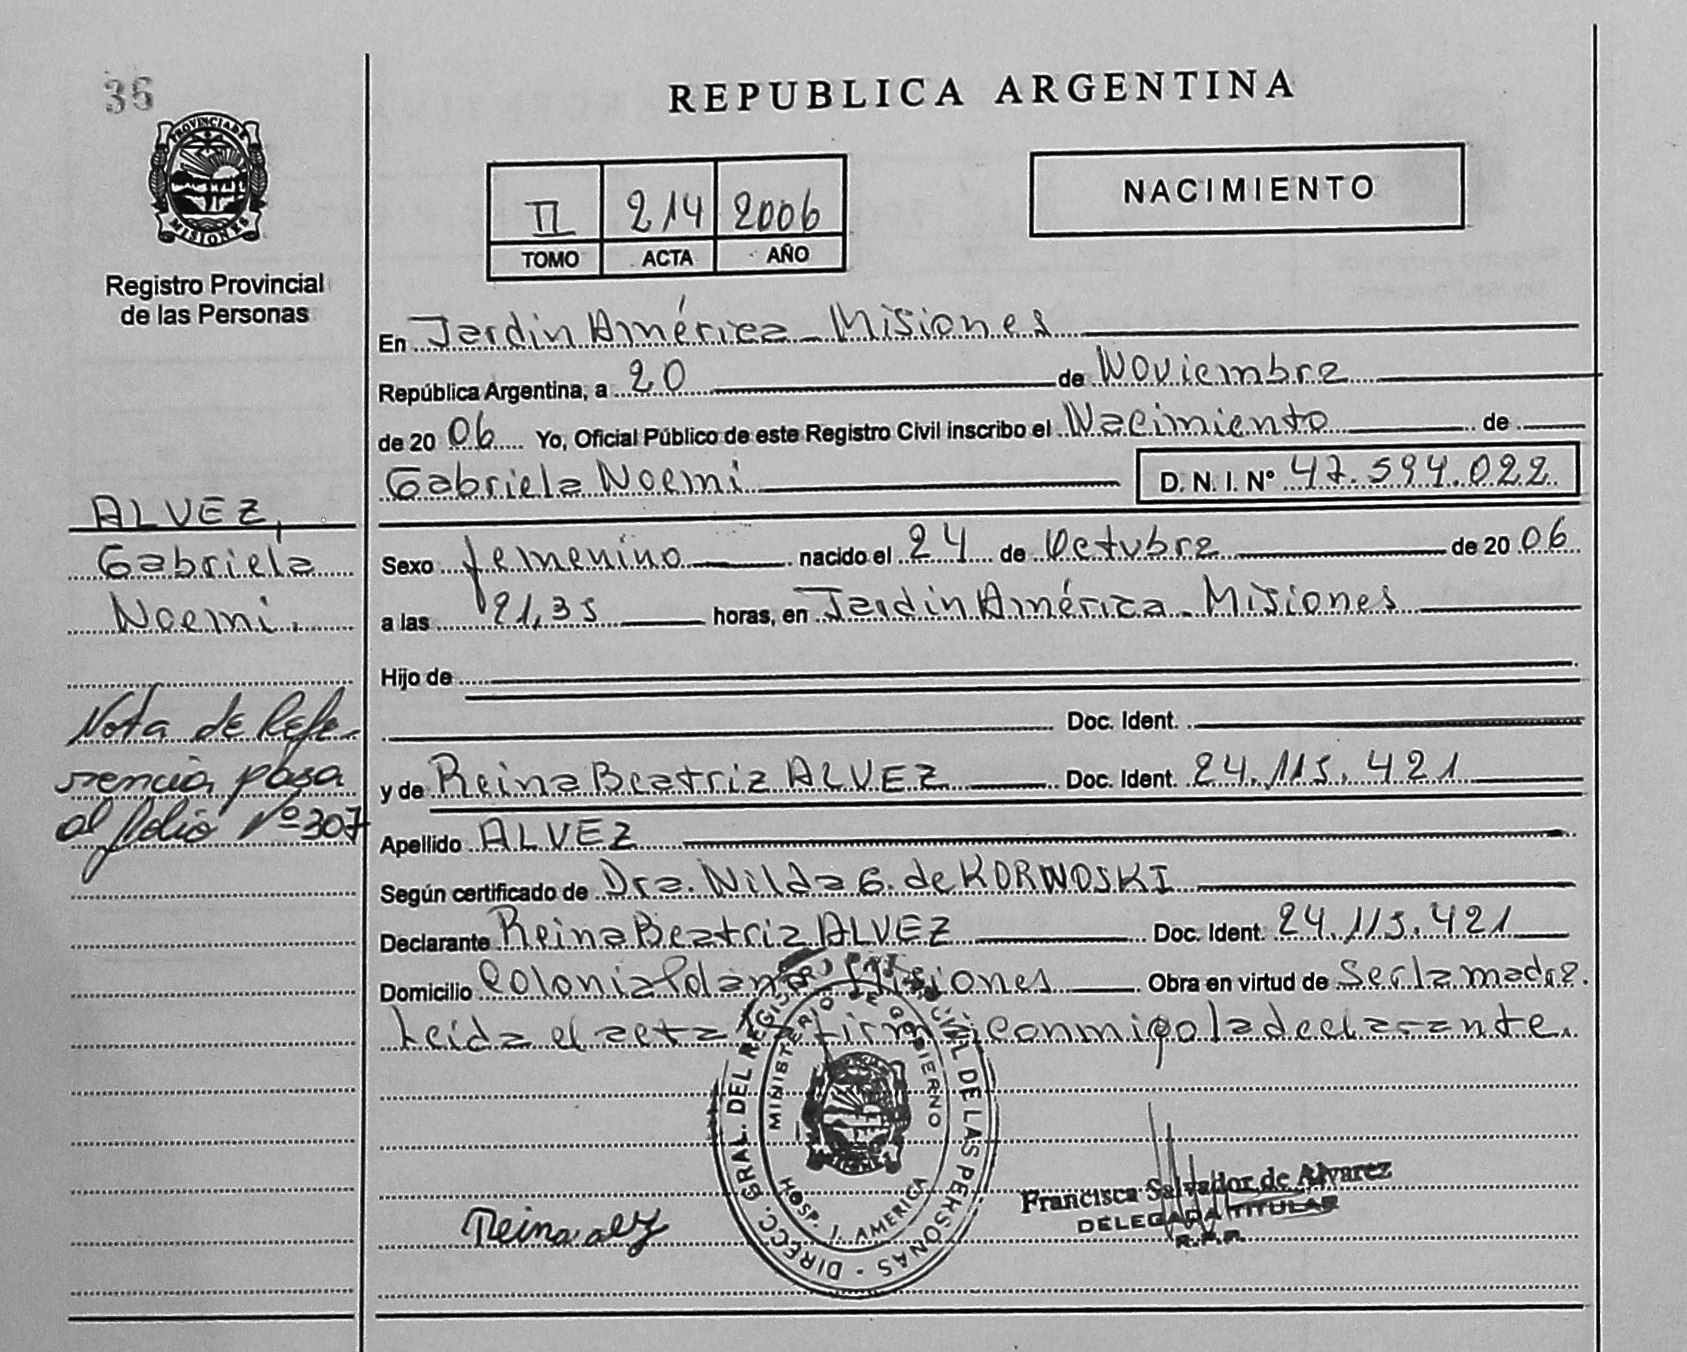 36
PROVINCIA DE
MISIONES
Registro Provincial
de las Personas
REPUBLICA ARGENTINA
II 214 2006
TOMO ACTA AÑO
NACIMIENTO
En Jardin América - Misiones
República Argentina, a 20 de Noviembre
de 20 06 Yo, Oficial Público de este Registro Civil inscribo el Nacimiento de
Gabriela Noemi D. N. I. Nº 47.594.022
ALVEZ,
Gabriela
Noemi.
Sexo femenino nacido el 24 de Octubre de 20 06
a las 21,35 horas, en Jardin América - Misiones
Hijo de
Doc. Ident.
y de Reina Beatriz ALVEZ Doc. Ident. 24.115.421
Nota de Refe-
rencia pasa
al folio Nº 307
Apellido ALVEZ
Según certificado de Dra. Nilda G. de KORWOSKI
Declarante Reina Beatriz ALVEZ Doc. Ident. 24.115.421
Domicilio Colonia Polana - Misiones Obra en virtud de Ser la madre.
Leida el acta la firma conmigo la declarante.
DIRECC. GRAL. DEL REGISTRO CIVIL DE LAS PERSONAS
MINISTERIO DE GOBIERNO
HOSP. J. AMERICA
Reina alez
Francisca Salvador de Alvarez
DELEGADA TITULAR
R.P.P.